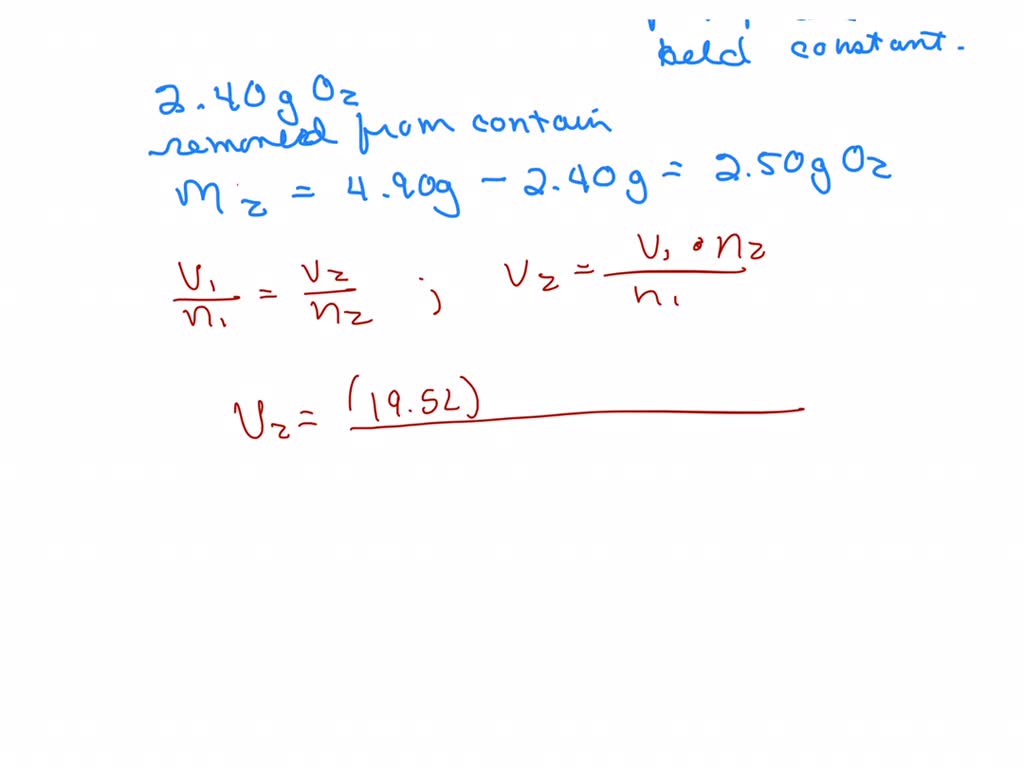 held constant.
2.40g O2
removed from contain
m2 = 4.90g − 2.40g = 2.50g O2
V1/n1 = V2/n2 ; V2 = V1 • n2/n1
V2 = (19.5L)